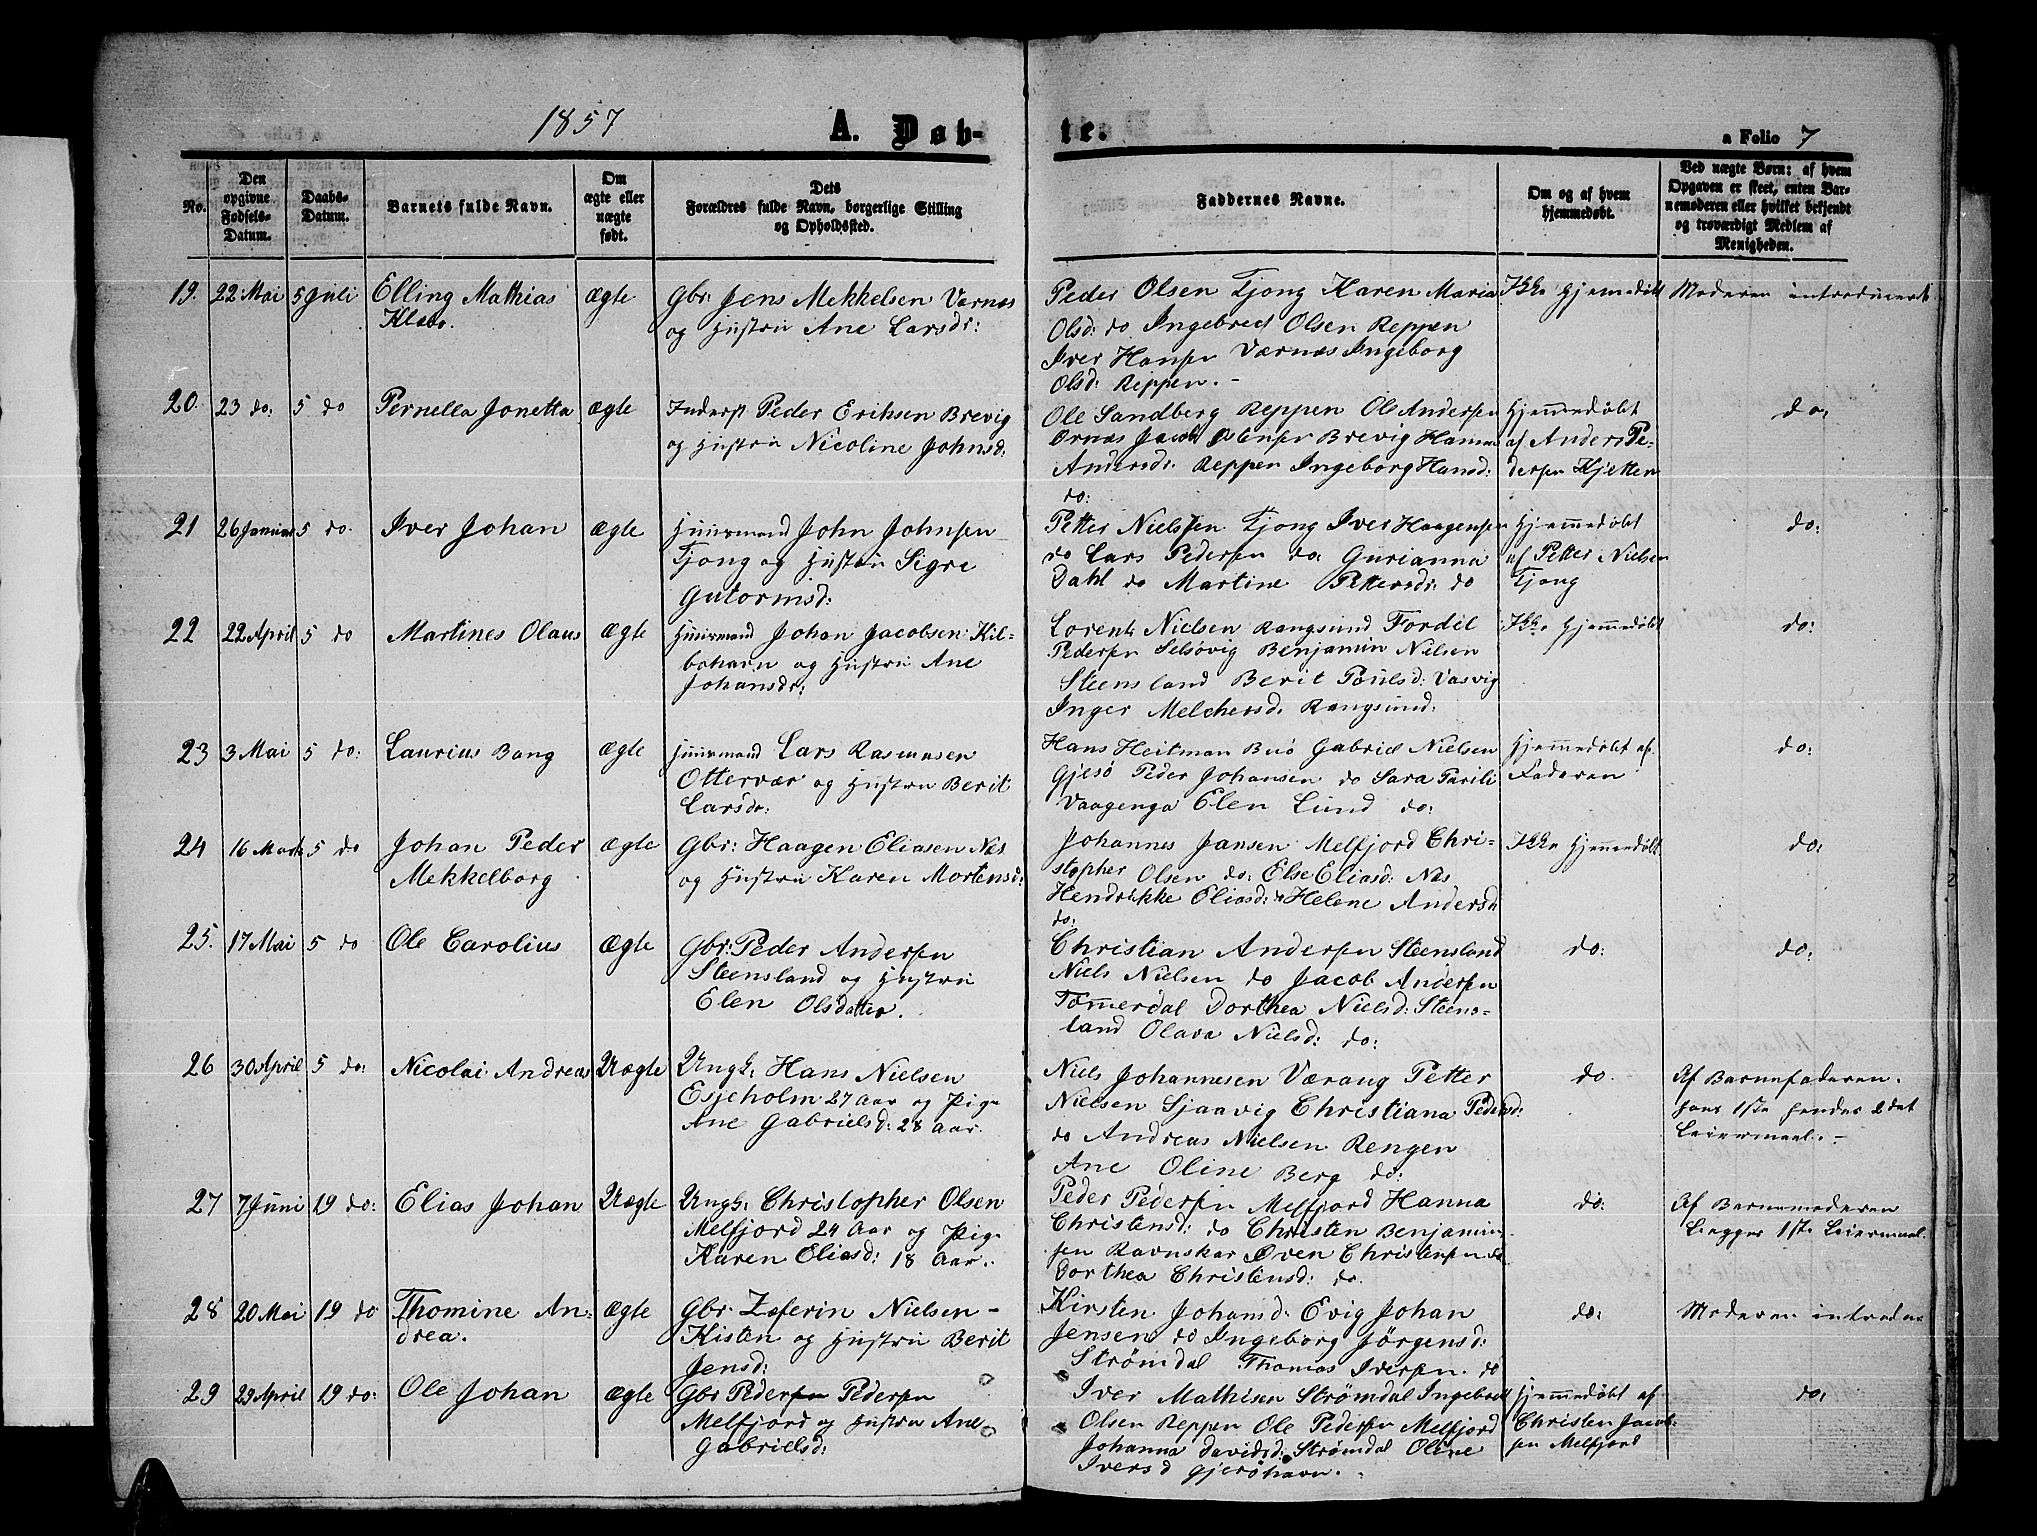 1857 A. Døb-
te. a Folio 7
No.
Den opgivne Fødsels-Datum.
Daabs-Datum.
Barnets fulde Navn.
Om ægte eller uægte født.
Dets Forældres fulde Navn, borgerlige Stilling og Opholdssted.
Faddernes Navne.
Om og af hvem hjemmedøbt.
Ved uægte Børn: af hvem Opgaven er skeet, enten Barnemoderen eller hvilket bekjendt og troværdigt Medlem af Menigheden.
19. 22 Mai 5 Juli Elling Mathias Ægte Gbr: Jens Mekkelsen Værnæs Peder Olsen Tjong Karen Maria Ikke hjemmedøbt Moderen introduceret
Klæbo. og Hustru Ane Larsdr: Olsd: do Ingebred Olsen Reppen
Iver Hansen Værnæs Ingeborg
Olsd: Reppen. -
20. 23 do: 5 do Pernella Jonetta Ægte Inderst Peder Eriksen Brevig Ole Sandberg Reppen Ole Andersen Hjemmedøbt do:
og Hustru Nicoline Johnsd: Ørnæs Jacob Brevig Hanna af Anders Pe-
Andersd: Reppen Ingeborg Hansd: dersen Kjetten
do:
21 26 Januar 5 do. Iver Johan Ægte Huusmand John Johnsen Petter Nielsen Tjong Iver Haagensen Hjemmedøbt do:
Tjong og Hustru Sigre do Lars Pedersen do Gurianna af Petter Nielsen
Gutormsd: Dahl do Martine Pettersd: do Tjong
22 22 April 5 do Martines Olaus Ægte Huusmand Johan Jacobsen Kil- Lorents Nielsen Rangsund Fordel Ikke hjemmedøbt do:
bohavn og Hustru Ane Pedersen Selsøvig Benjamin Nilsen
Johansdr: Steensland Berit Poulsd: Vasvig
Inger Melchersd: Rangsund:
23 3 Mai 5 do: Laurius Bang Ægte Huusmand Lars Rasmusen Hans Heitman Buø Gabriel Nielsen Hjemmedøbt af do:
Ottervær og Hustru Berit Gjesø Peder Johansen do Sara Faderen
Larsdr: Vaagenga Elen Lund do:
24 16 Marts 5 do Johan Peder Ægte Gbr: Haagen Eliasen Næs Johannes Jansen Melfjord Chri- Ikke hjemmedøbt do:
Mekkelborg og Hustru Karen Mortensd: stopher Olsen do: Else Eliasd: Næs
Hendrikke Eliasd: Helene Andersd
do:
25. 17 Mai 5 do Ole Carolius Ægte Gbr: Peder Andersen Christian Andersen Steensland do: do:
Steensland og Hustru Niels Nielsen do Jacob Andersen
Elen Olsdatter. Tømerdal Dorthea Nielsd: Steens-
land Olava Nielsd: do:
26 30 April 5 do: Nicolai Andreas Uægte Ungk: Hans Nielsen Niels Johannesen Værang Petter do. Af Barnefaderen.
Esjeholm 27 Aar og Pige Nielsen Sjaavig Christiana Pedersd: hans 1ste hendes 2det
Ane Gabrielsd: 28 Aar. do Andreas Nielsen Rengen Leiermaal. -
Ane Oline Berg do:
27 7 Juni 19 do: Elias Johan Uægte Ungk: Christopher Olsen Peder Pedersen Melfjord Hanna do: Af Barnemoderen
Melfjord 24 Aar og Pige Christensd: do Christen Benjamin- Begges 1ste Leiermaal.
Karen Eliasd: 18 Aar. sen Ravnskar Even Christensen do
Dorthea Christensd: do.
28 20 Mai 19 do Thomine An- Ægte Gbr. Zeferin Nielsen Kirsten Johansd: Evig Johan do: Moderen introduc
drea. Kisten og Hustru Berit Jensen do Ingeborg Jørgensd:
Jensd: Strømdal Thomas Iversen. do
29 29 April 19 do: Ole Johan Ægte Gbr Pedersen Pedersen Iver Mathisen Strømdal Ingebret Hjemmedøbt af do:
Melfjord og Hustru Ane Olsen Reppen Ole Pedersen Melfjord Christen Jacob-
Gabrielsd: Johanna Davidsd: Strømdal Oline sen Melfjord
Iversd Gjerøhavn.